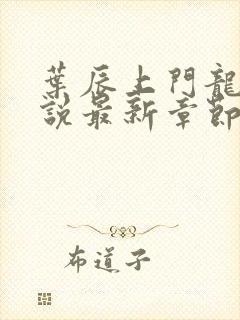 葉辰上門龍
說最新章節
布道子